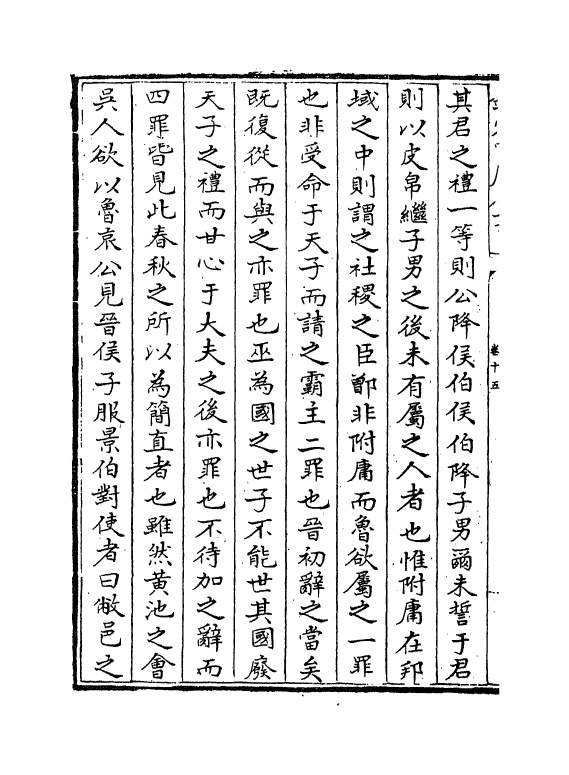 其君之禮一等則公降侯伯侯伯降子男爾未誓于君
則以皮帛繼子男之後未有屬之人者也惟附庸在邦
域之中則謂之社稷之臣鄫非附庸而魯欲屬之一罪
也非受命于天子而請之霸主二罪也晉初辭之當矣
既復從而與之亦罪也巫為國之世子不能世其國廢
天子之禮而甘心于大夫之後亦罪也不待加之辭而
四罪皆見此春秋之所以為簡直者也雖然黄池之會
吳人欲以魯哀公見晉侯子服景伯對使者曰敝邑之
卷十五